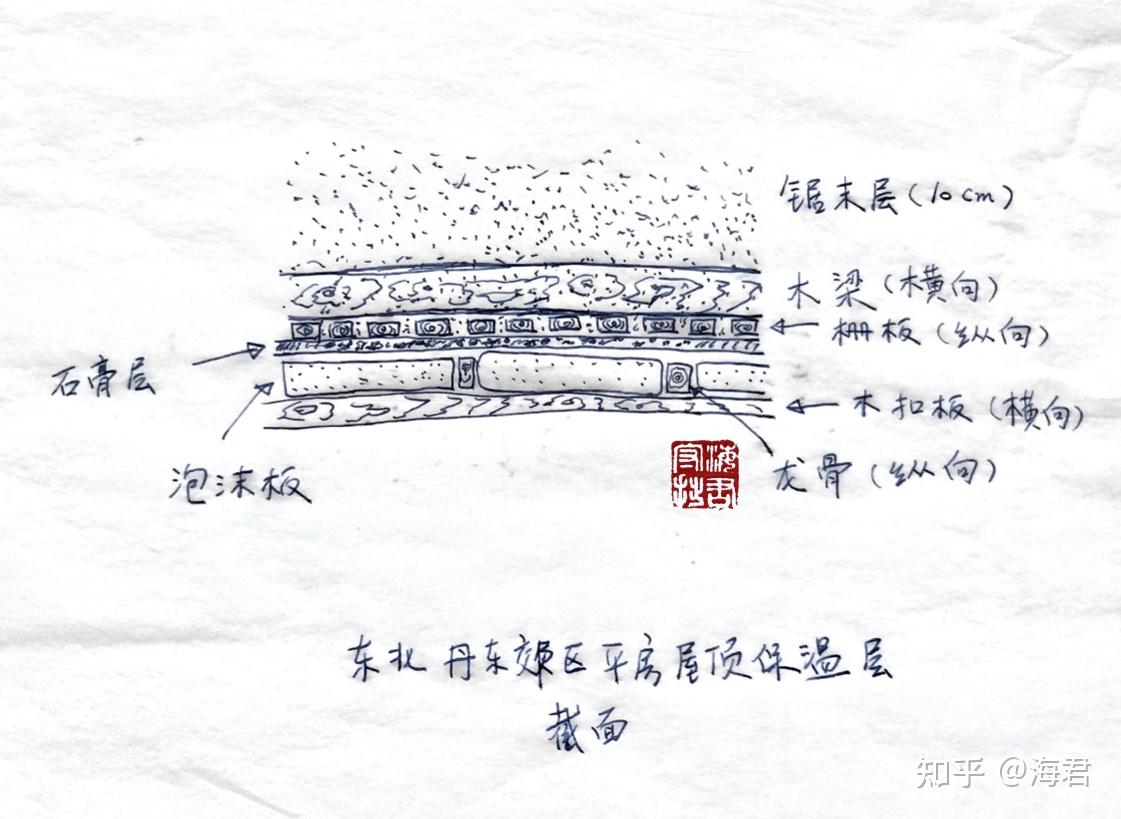 锯末层(10cm)
木梁(横向)
栅板(纵向)
石膏层
木扣板(横向)
泡沫板
龙骨(纵向)
东北丹东郊区平房屋顶保温层
截面
知乎 @海君